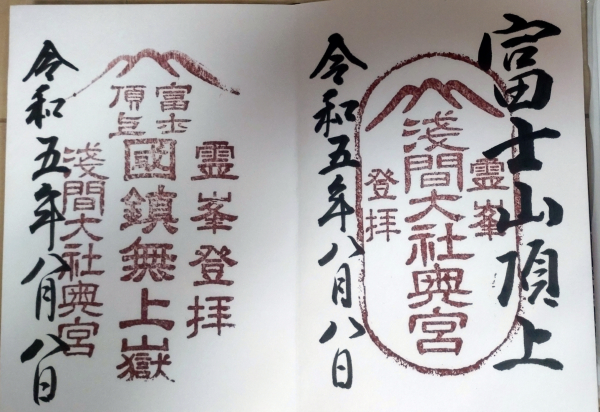 富士山頂上
霊峯
登拝
淺間大社奥宮
令和五年八月八日
霊峯登拝
富士
頂上
國鎮無上嶽
淺間大社奥宮
令和五年八月八日